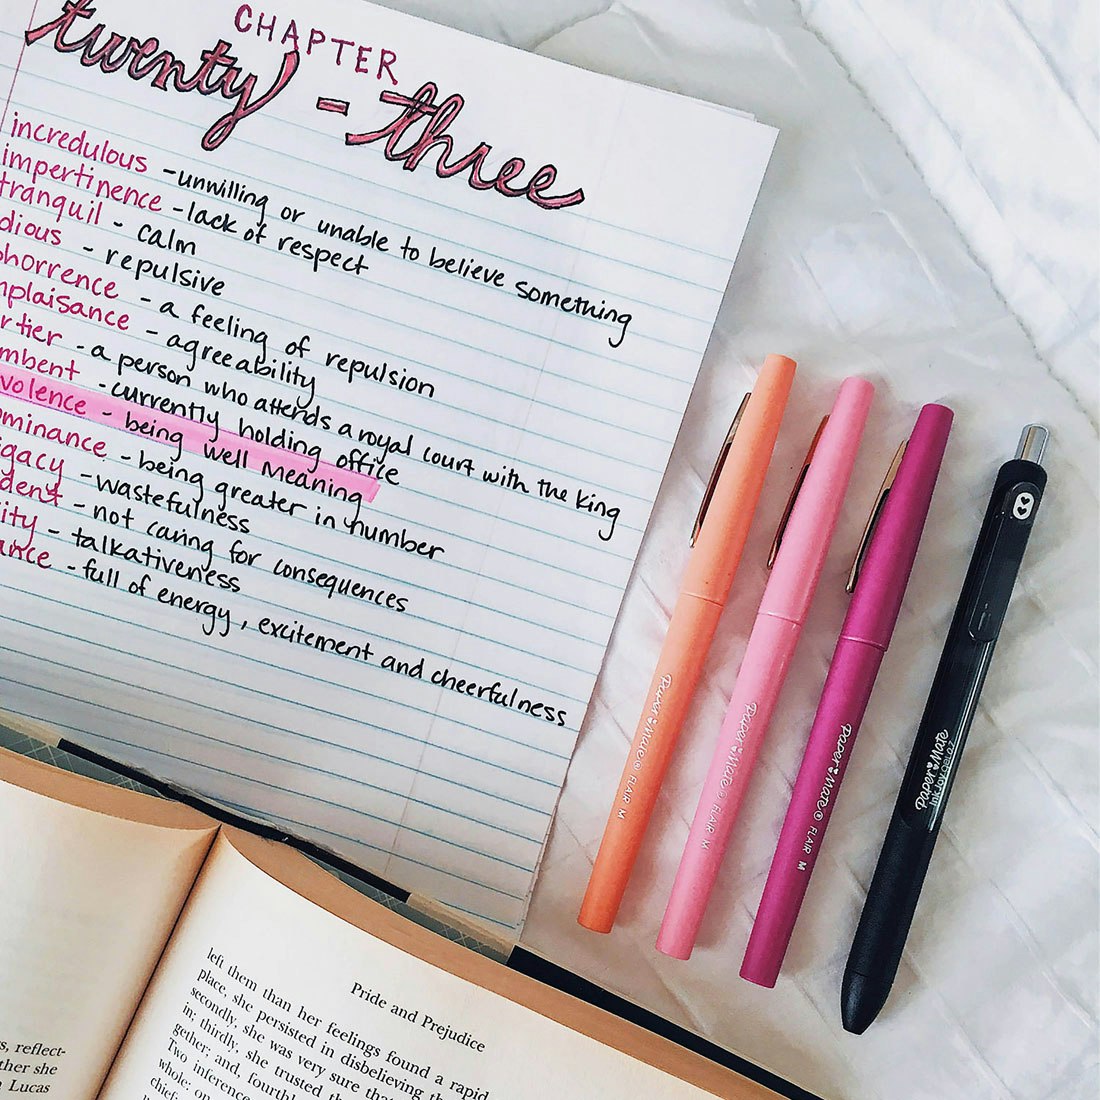 CHAPTER
twenty-three
incredulous - unwilling or unable to believe something
impertinence - lack of respect
tranquil - calm
dious - repulsive
horrence - a feeling of repulsion
plaisance - agreeability
rtier - a person who attends a royal court with the king
mbent - currently holding office
volence - being well meaning
minance - being greater in number
igacy - wastefulness
dent - not caring for consequences
ity - talkativeness
ance - full of energy, excitement and cheerfulness
Paper Mate® FLAIR M
Paper Mate® FLAIR M
Paper Mate® FLAIR M
Paper Mate
InkJoy Gel 0.7
Pride and Prejudice
left them than her feelings found a rapid
place, she persisted in disbelieving th
secondly, she was very sure tha
in; thirdly, she trusted th
gether; and, fourthl
Two inference
whole: on
chief
s, reflect-
ther she
Lucas